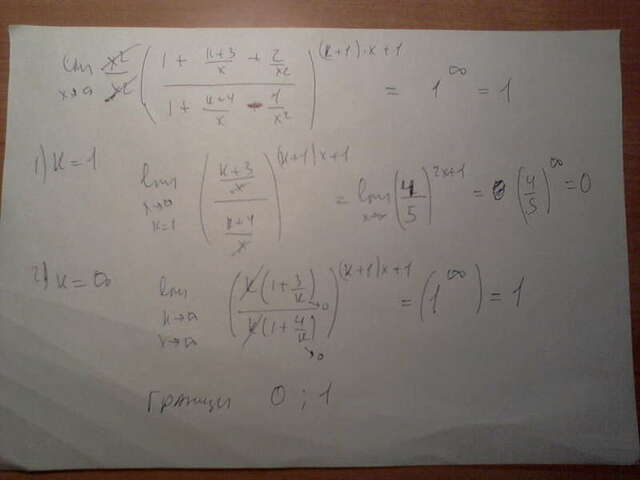 lim x→∞ x²/x² ( (1 + (k+3)/x + 2/x²) / (1 + (k+4)/x - 1/x²) )^((k+1)·x+1) = 1^∞ = 1
1) k=1 lim x→∞ k=1 ( ((k+3)/x) / ((k+4)/x) )^((k+1)x+1) = lim x→∞ (4/5)^(2x+1) = (4/5)^∞ = 0
2) k=∞ lim k→∞ x→∞ ( k(1+3/k)→0 / k(1+4/k)→0 )^((k+1)x+1) = (1^∞) = 1
Границы 0 ; 1